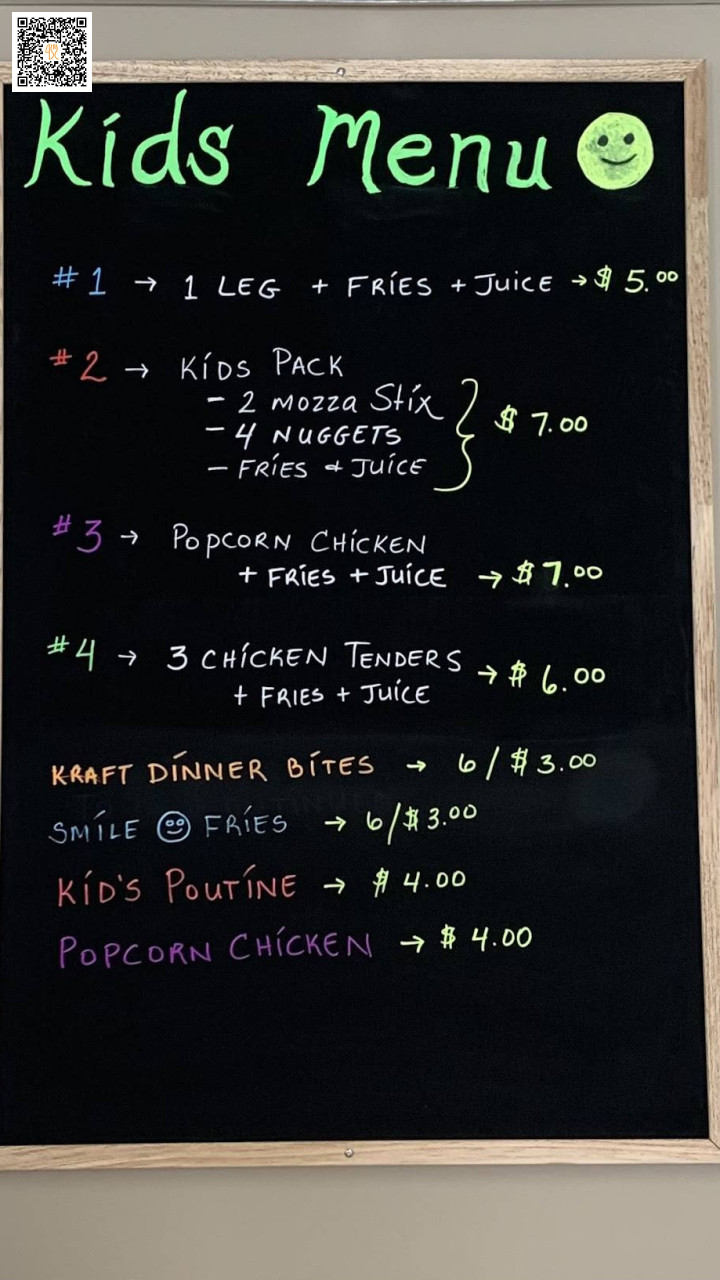 Kids Menu
#1 → 1 LEG + FRIES + JUICE → $5.00
#2 → KIDS PACK
- 2 MOZZA STIX
- 4 NUGGETS
- FRIES & JUICE
$7.00
#3 → POPCORN CHICKEN
+ FRIES + JUICE → $7.00
#4 → 3 CHICKEN TENDERS
+ FRIES + JUICE → $6.00
KRAFT DINNER BITES → 6/$3.00
SMILE FRIES → 6/$3.00
KID'S POUTINE → $4.00
POPCORN CHICKEN → $4.00